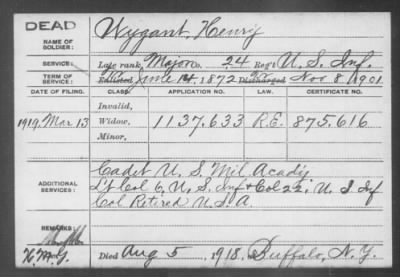 DEAD
NAME OF SOLDIER: Wygant, Henry
SERVICE: Late rank, Major Co. 24 Reg't U.S. Inf.
TERM OF SERVICE: Enlisted June 14, 1872 Discharged Nov 8 1901
DATE OF FILING. CLASS. APPLICATION NO. LAW. CERTIFICATE NO.
Invalid,
1919, Mar 13 Widow, 1137.633 R.E. 875.616
Minor,
ADDITIONAL SERVICES: Cadet U. S. Mil. Acad'y
Lt Col 6, U. S. Inf & Col 22, U. S. Inf
Col Retired U.S.A
REMARKS:
Died Aug 5, 1918, Buffalo, N.Y.